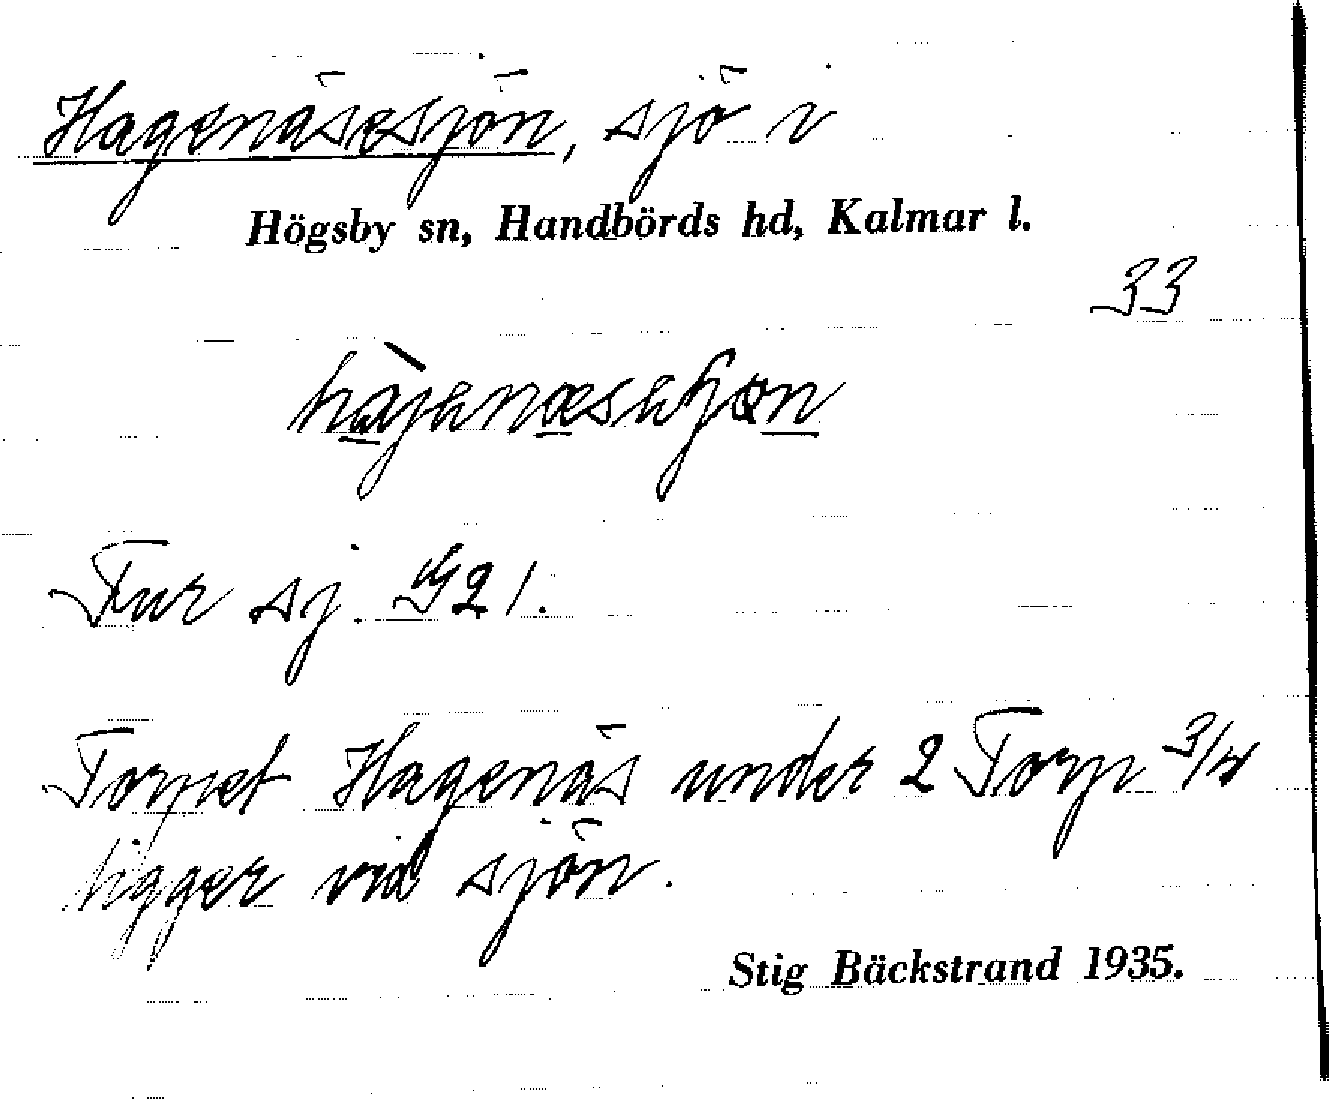 Hagenäsesjön, sjö i
Högsby sn, Handbörds hd, Kalmar l.
33
Tur sj. G21.
Torpet Hagenäs under 2 Torp 3/4
ligger vid sjön.
Stig Bäckstrand 1935.